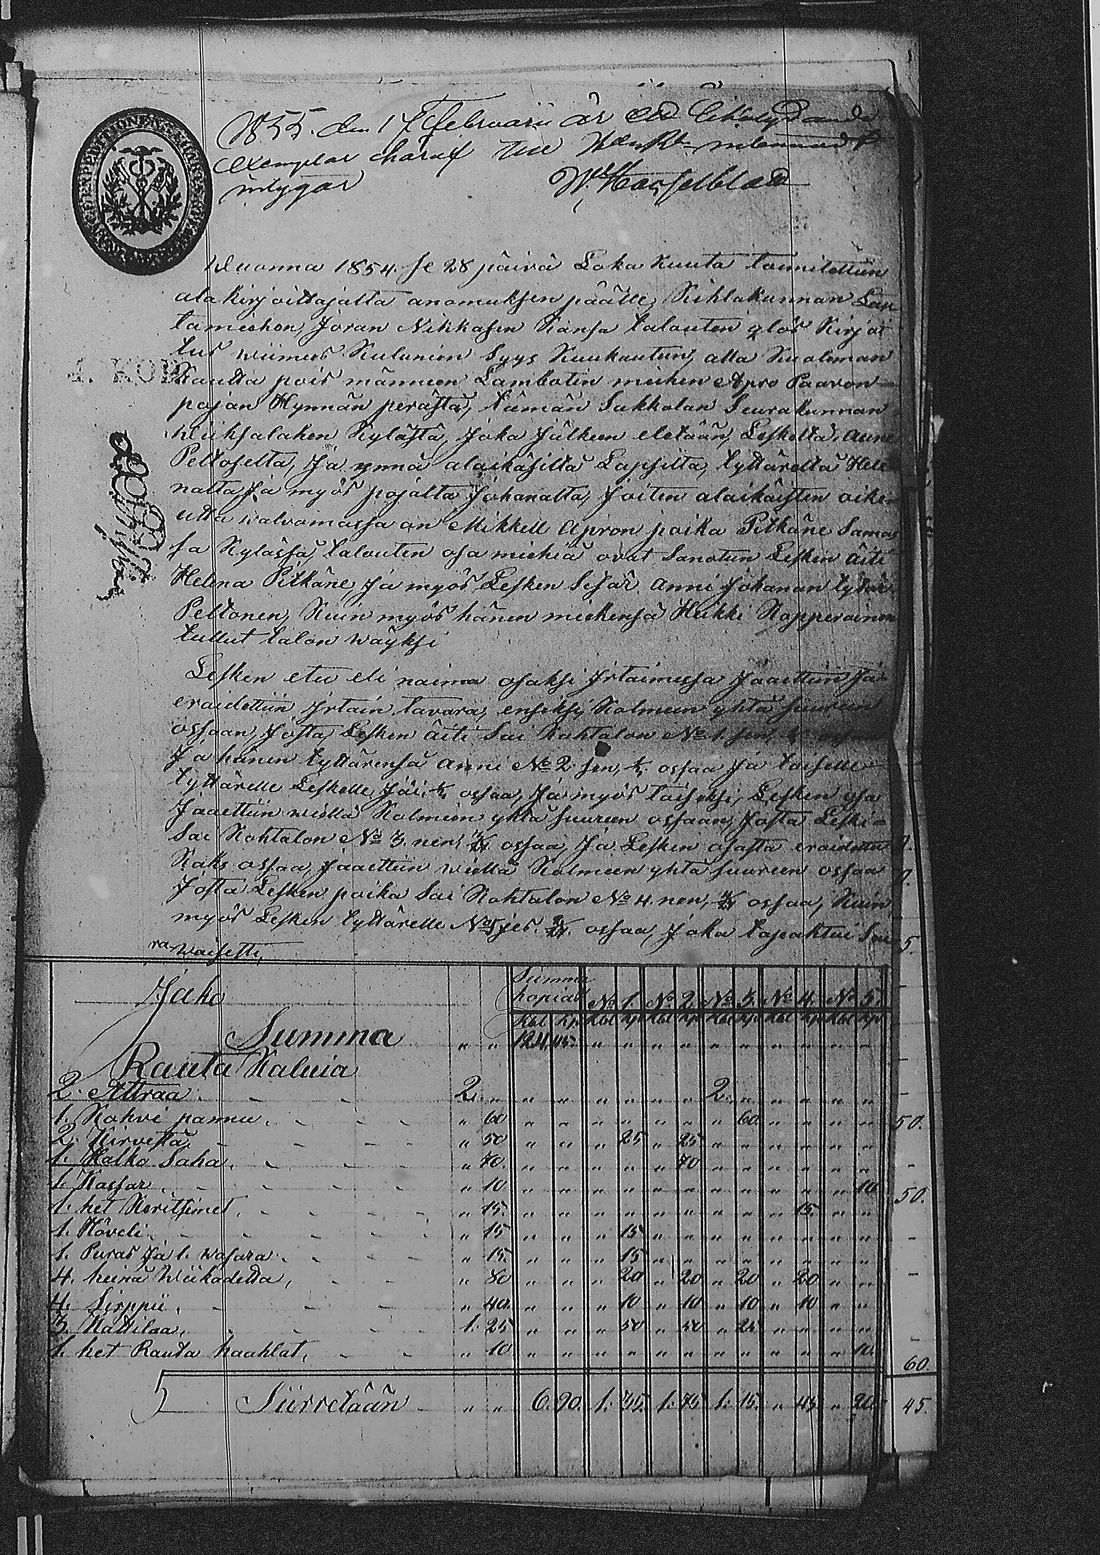 1855 den 17 Februarii är ett
exemplar häraf till
intygar W. Hasselblad
Wuonna 1854 se 28 päivä Loka Kuuta toimitettiin
alakirjoittajalta anomuksen päälle, Kihlakunnan Lau
tamiehen, Jöran Nikkasen Kansa talouten ylös Kirjoi
tus wiimeis Kulunien Syys Kuukauten, alla Kualeman
Kautta pois männeen Lambotin miehen Apro Paavon
pojan Hynnän perästä, tämän Sakkolan Seurakunnan
wiiksalahen Kylästä, Joka Jälkeen eletään, Leskeltä, Anni
Peltoselta, Ja ynnä alaikäsiltä Lapsilta, tyttäreltä Hele
nalta, Ja myös pojalta Johanalta, Joiten alaikäisten oike
utta walvomassa on Mikkell Apron poika Pitkäne Samas
sa Kylässä, talouten osa miehiä ovat Sanotun Lesken äiti
Helena Pitkäne, Ja myös Lesken Sisar Anni Johanan tytär
Peltonen, Kuin myös hänen miehensä Heikki Kopperoinen
tullut talon wäyksi
Lesken etu eli naima osaksi Jrtaimissa Jaaettiin Ja
eraidettiin Jrtain tavara, ensiksi, Kolmeen yhtä suureen
ossaan, Josta Lesken äiti Sai Kohtalon No 1. sen, ossaa
Ja hänen tyttärensä Anni No 2 sen, ossaa Ja toiselle
tyttärelle Leskelle Jäi ossaa, Ja myös toiseksi, Lesken osa
Jaaettiin wiellä Kolmeen yhtä suureen ossaan, Josta Leski
Sai Kohtalon No 3. nen, ossaa, Ja Lesken osasta eraidettu
Kaks ossaa, Jaaettiin wiellä Kolmeen yhtä suureen ossaa
Josta Lesken poika Sai Kohtalon No 4. nen, ossaa, Kuin
myös Lesken tyttärelle No 5 jes. ossaa, Joka tapahtui Seu
ra waisesti,
Jako Summa hopiata No 1. No 2. No 3. No 4. No 5.
Rbl Kp Rbl Kp Rbl Kp Rbl Kp Rbl Kp Rbl Kp
Summa " " 124 45 " " " " " " " " " "
Rauta Kaluia
2. Attraa 2. " " " " " " " 2. " " " " "
1. Kahvi pannu " 60 " " " " " " " 60 " " " "
2. Kirvestä " 50 " " " 25 " 25 " " " " " "
1. Halko Saha " 70 " " " " " 70 " " " " " "
1. Kassar " 10 " " " " " " " " " " " 10
1. het Keritsimet " 15 " " " " " " " " " 15 " "
1. Höveli " 15 " " " 15 " " " " " " " "
1. Puras Ja 1. wasara " 15 " " " 15 " " " " " " " "
4. heinä Wiikadetta " 80 " " " 20 " 20 " 20 " 20 " "
4. Sirppii " 40 " " " 10 " 10 " 10 " 10 " "
3. Kattilaa 1. 25 " " " 50 " 50 " 25 " " " "
1. het Rauta haahlat " 10 " " " " " " " " " " " 10
Siirretään " " 6. 90. 1. 35. 1. 75 1. 15. " 45. " 20.
50.
50.
60
45.